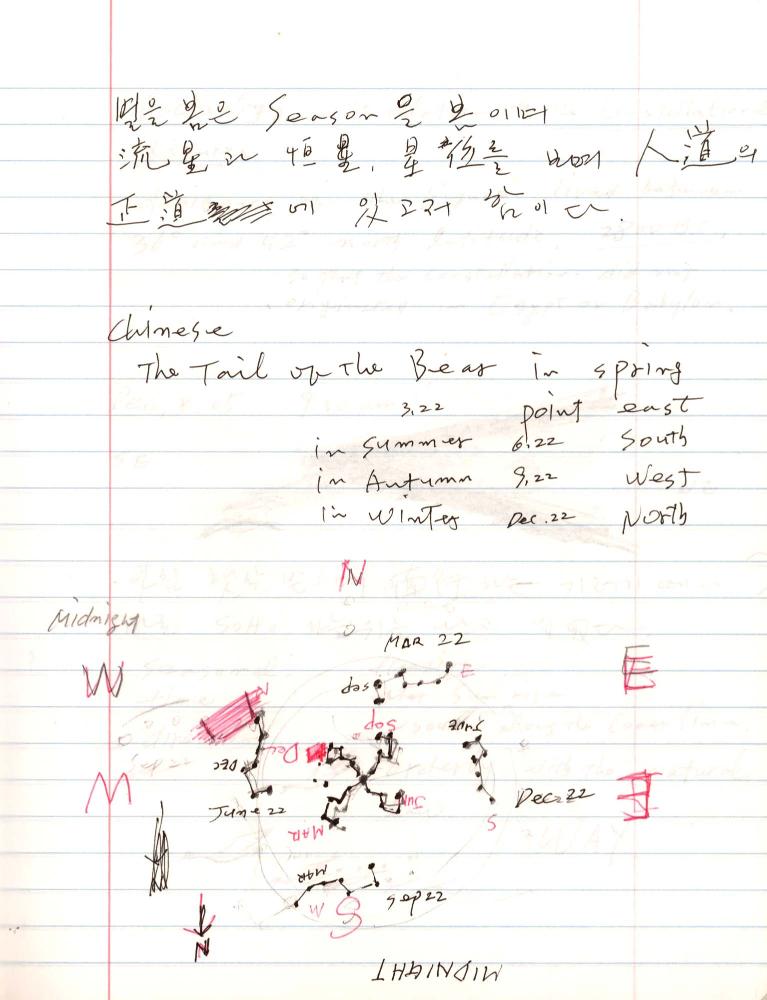 별을 봄은 Season을 봄이며
流星과 恒星, 星座를 보며 人道의
正道에 있고저 함이다.
Chinese
The Tail of the Bear in spring
3.22 point east
in summer 6.22 South
in Autumn 9.22 West
in Winter Dec.22 North
N
Midnight
MAR 22
W E
Sep E
N Sep JUNE
Dec
DEC
June 22 JUN Dec 22
MAR S
MAR Sep 22
W S
N
MIDNIGHT